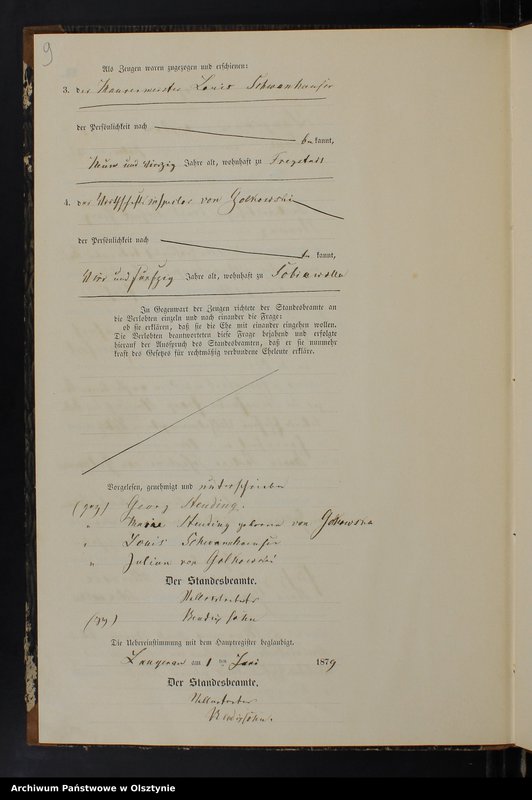 9
Als Zeugen waren zugezogen und erschienen:
3. der Maurermeister Louis Schwanhäuser
der Persönlichkeit nach
be kannt,
Neun und vierzig Jahre alt, wohnhaft zu Freystadt
4. der Wirthschaftsinspector von Golkowski
der Persönlichkeit nach
be kannt,
Vier und fünfzig Jahre alt, wohnhaft zu Sobiewolla
In Gegenwart der Zeugen richtete der Standesbeamte an
die Verlobten einzeln und nach einander die Frage:
ob sie erklären, daß sie die Ehe mit einander eingehen wollen.
Die Verlobten beantworteten diese Frage bejahend und erfolgte
hierauf der Ausspruch des Standesbeamten, daß er sie nunmehr
kraft des Gesetzes für rechtmäßig verbundene Eheleute erkläre.
Vorgelesen, genehmigt und unterschrieben
(gez) Georg Steuding.
" Marie Steuding geborene von Golkowska
" Louis Schwanhäuser
" Julian von Golkowski
Der Standesbeamte.
(gz)
Die Uebereinstimmung mit dem Hauptregister beglaubigt.
Langenau am 1 ten Juni 1879
Der Standesbeamte.
Archiwum Państwowe w Olsztynie